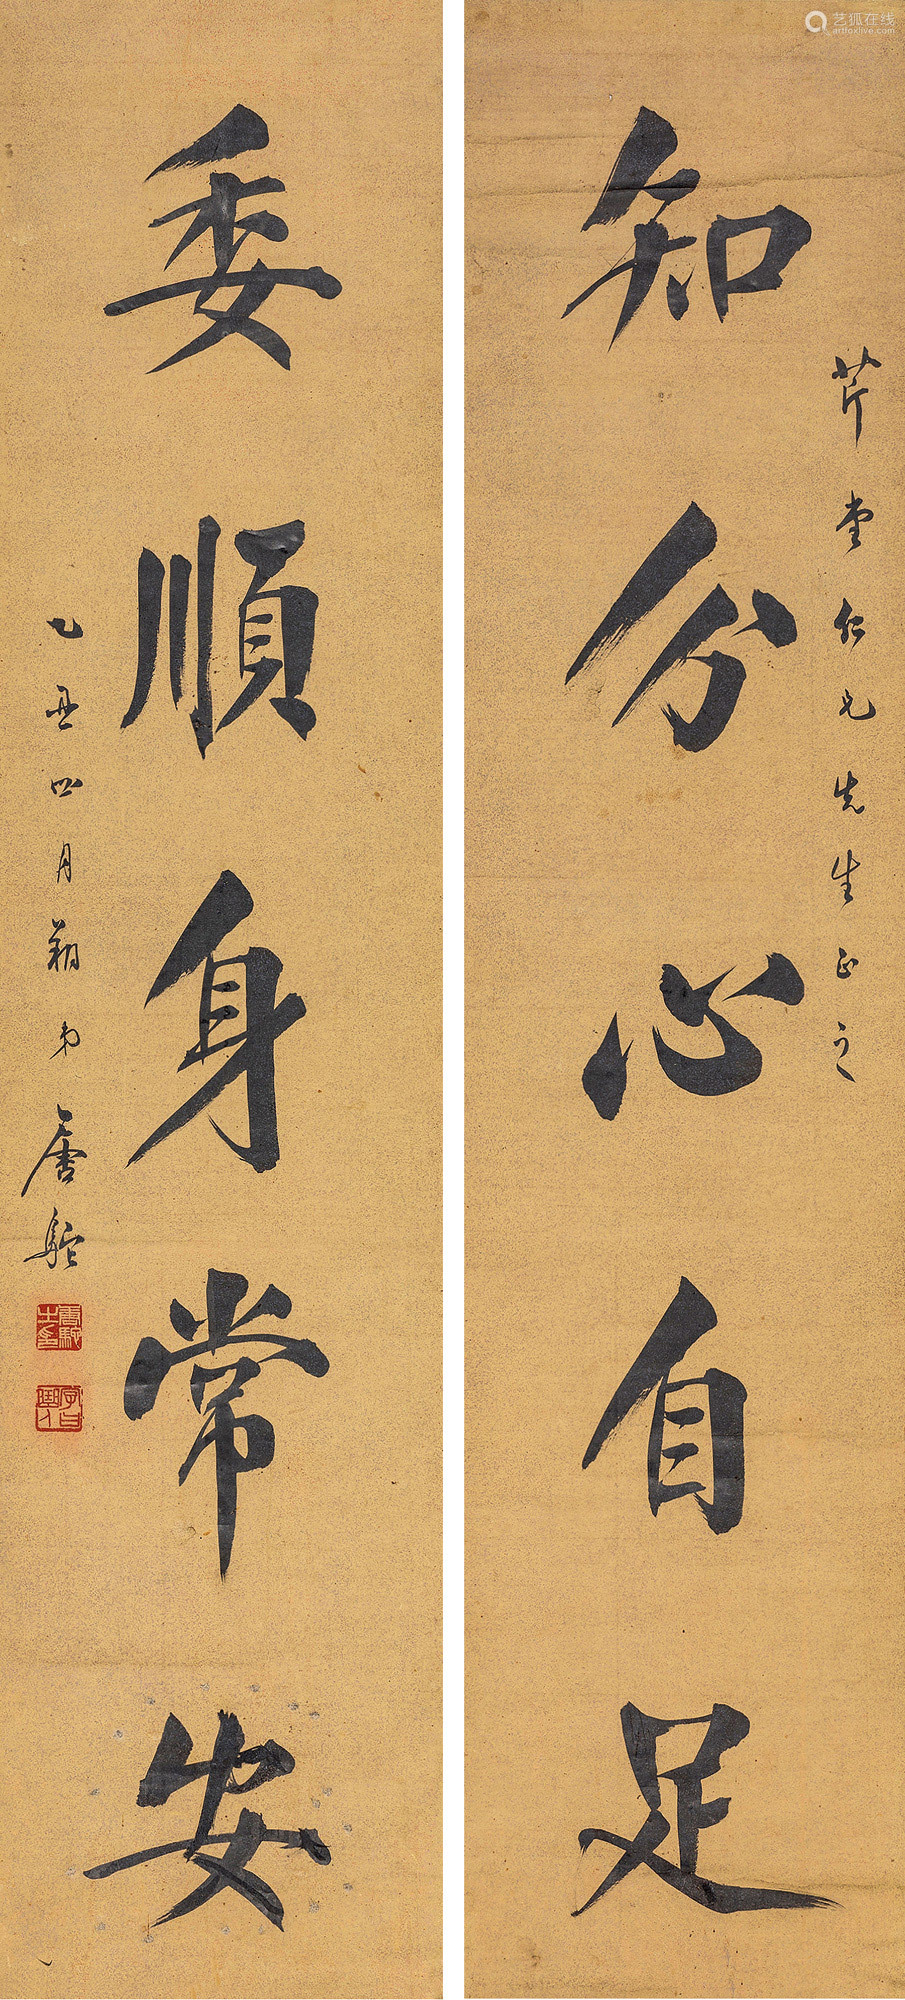 艺狐在线
artfoxlive.com
知分心自足
芹堂仁兄先生正之
委順身常安
乙丑四月翔弟唐駝
唐駝之印